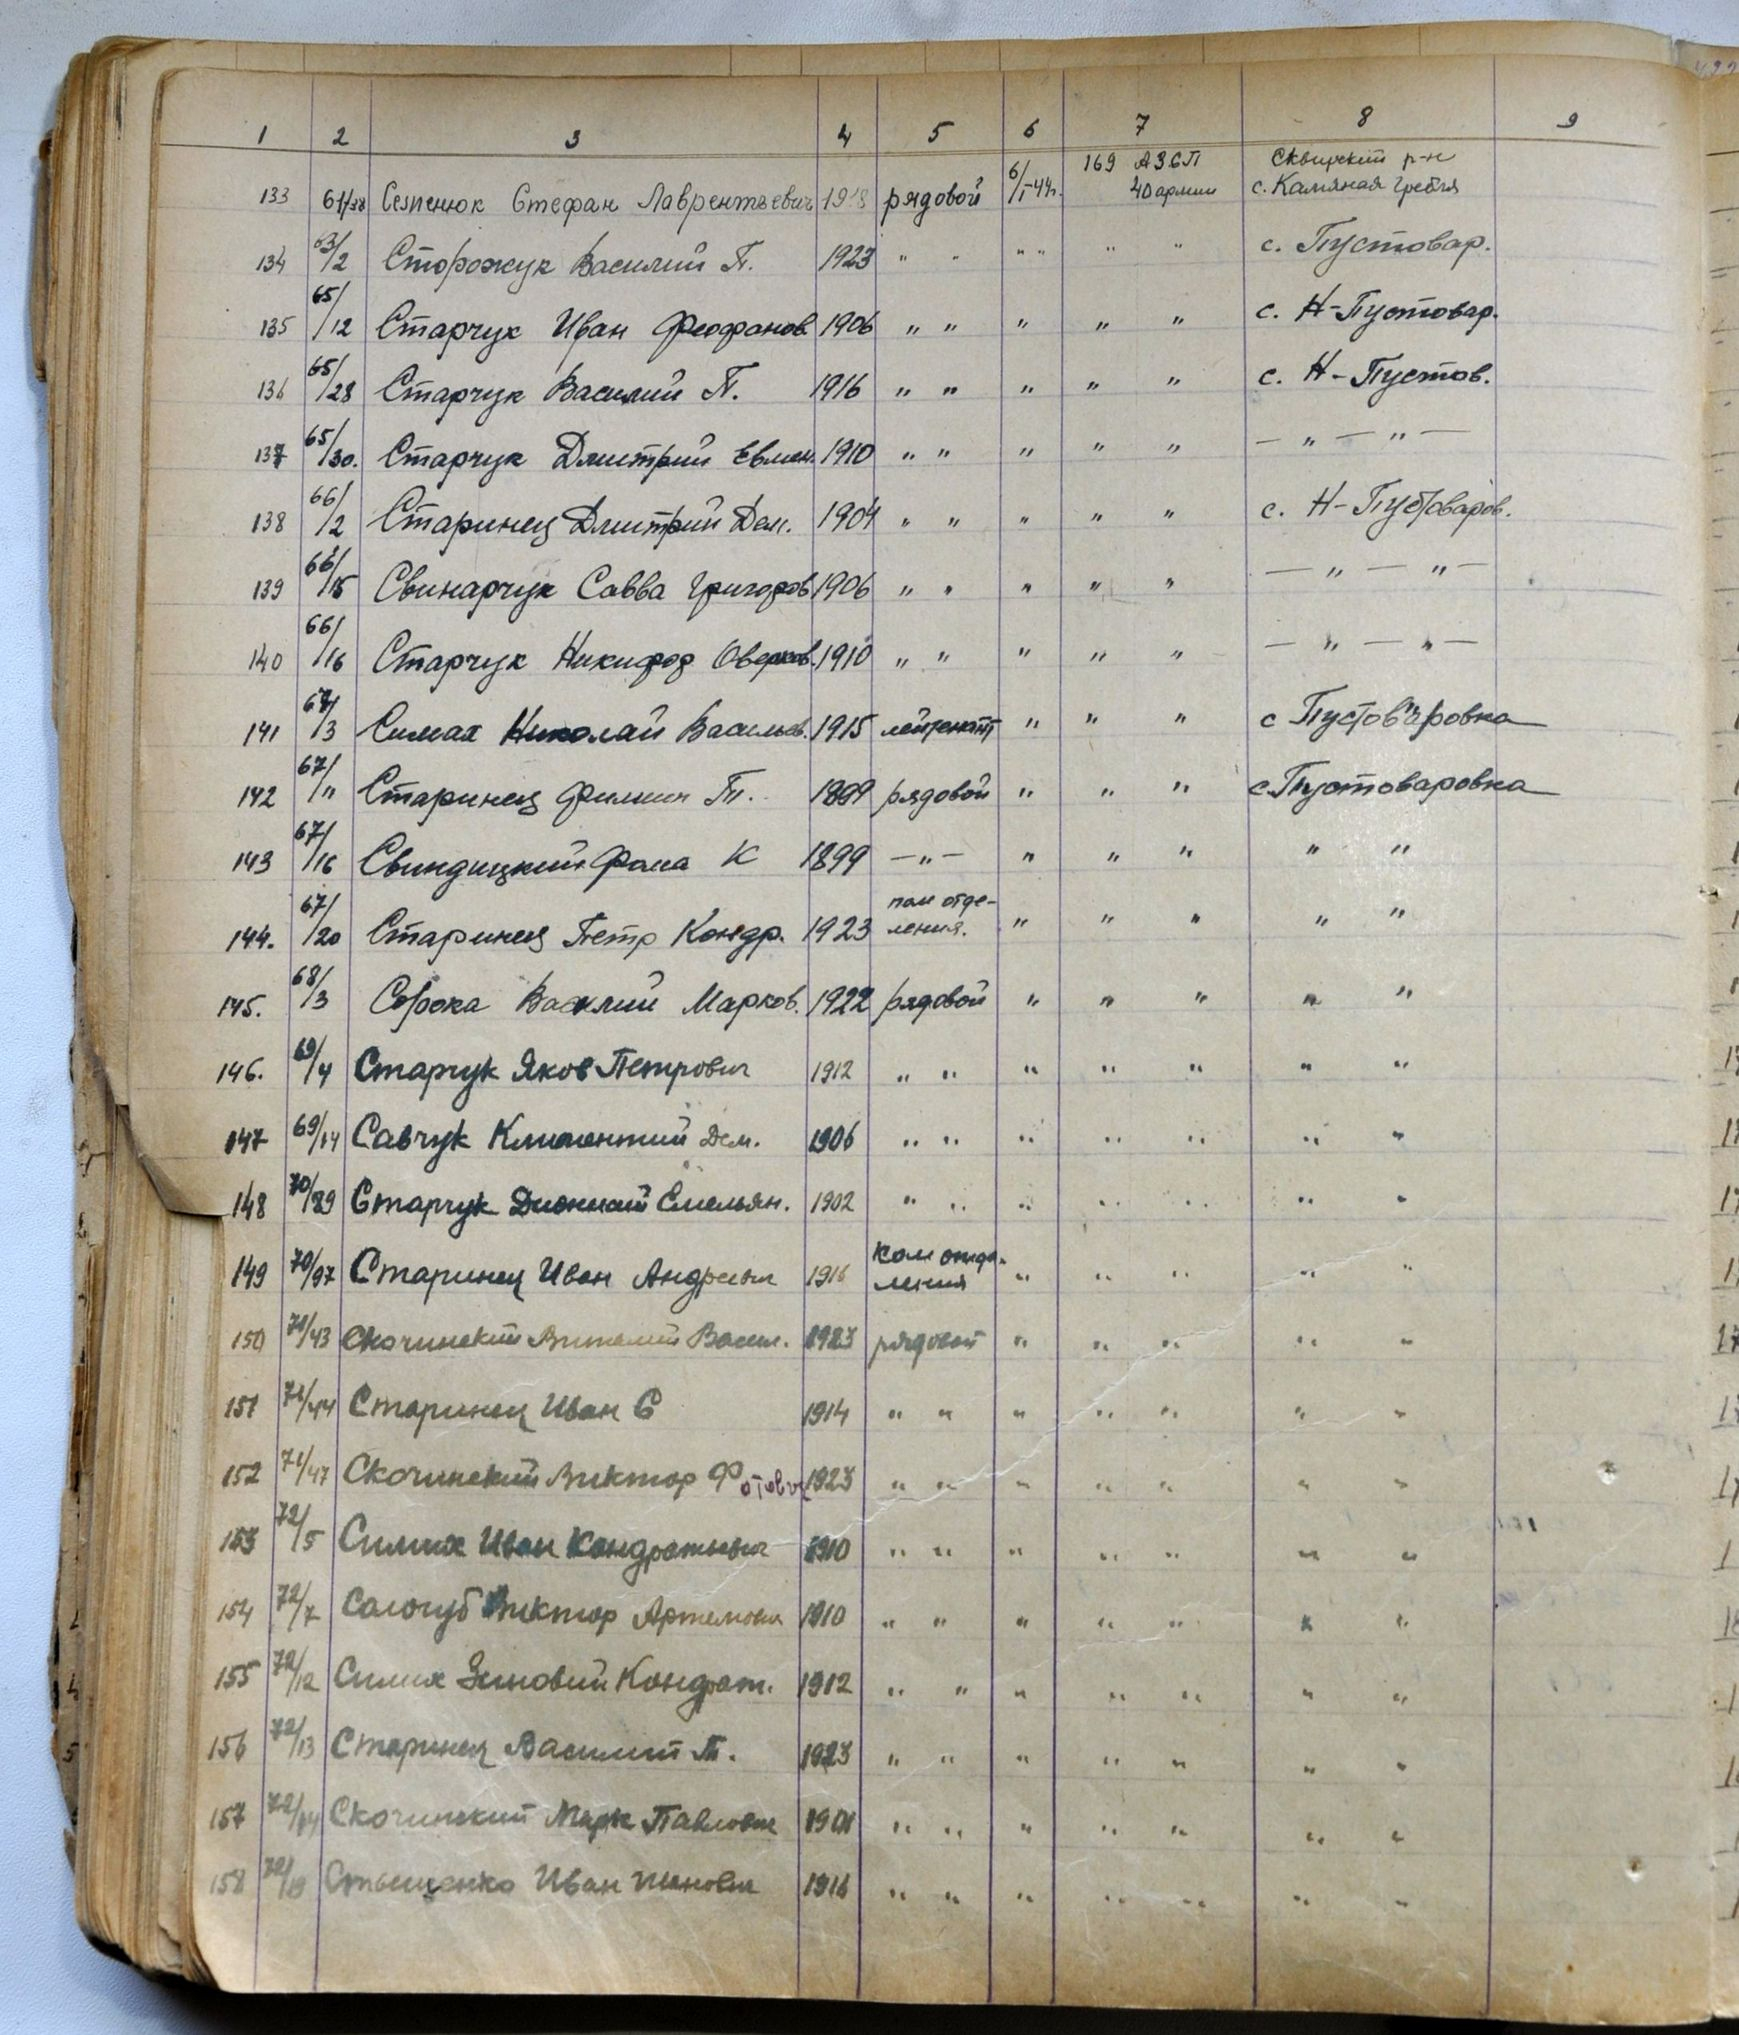 1 2 3 4 5 6 7 8 9
133 61/38 Стефан Лаврентьевич рядовой 6/I-44г. 169 АЗСП 40 армии Сквирский р-н с. Камяная Гребля
134 63/2 Сторожук Василий П. 1923 " " " " " " с. Пустовар.
135 65/12 Старчук Иван Феофанов. 1906 " " " " " с. Н-Пустовар.
136 65/28 Старчук Василий П. 1916 " " " " " с. Н-Пустов.
137 65/30. Старчук Дмитрий Евмен. 1910 " " " " " — " — " —
138 66/2 Старинец Дмитрий Дем. 1904 " " " " " с. Н-Пустоваров.
139 66/15 Свинарчук Савва Григоров 1906 " " " " " — " — " —
140 66/16 Старчук Никифор Оверков. 1910 " " " " " — " — " —
141 67/3 Симах Николай Васильев. 1915 лейтенант " " " с Пустоваровка
142 67/11 Старинец Филипп Т. 1899 рядовой " " " с Пустоваровка
143 67/16 Свиндицкий Фома К 1899 — " — " " " " "
144. 67/20 Старинец Петр Кондр. 1923 пом отде-ления. " " " " "
145. 68/3 Сорока Василий Марков. 1922 рядовой " " " " "
146. 69/4 Старчук Яков Петрович 1912 " " " " " " "
147 69/14 Савчук Климентий Дем. 1906 " " " " " " "
148 70/89 Старчук Емельян. 1902 " " " " " " "
149 70/97 Старинец Иван Андреевич 1916 ком отде-ления " " " " "
150 71/43 Скочинский Виталий Васил. 1923 рядовой " " " " "
151 71/44 Старинец Иван С 1914 " " " " " " "
152 71/47 Скочинский Виктор Фотович 1923 " " " " " " "
153 72/5 Симих Иван Кондратьевич 1910 " " " " " " "
154 72/7 Сологуб Виктор Артемович 1910 " " " " " " "
155 72/12 Симих Зиновий Кондрат. 1912 " " " " " " "
156 72/13 Старинец Василий Т. 1923 " " " " " " "
157 72/14 Скочинский Марк Павлович 1901 " " " " " " "
158 72/19 Иван 1916 " " " " " " "